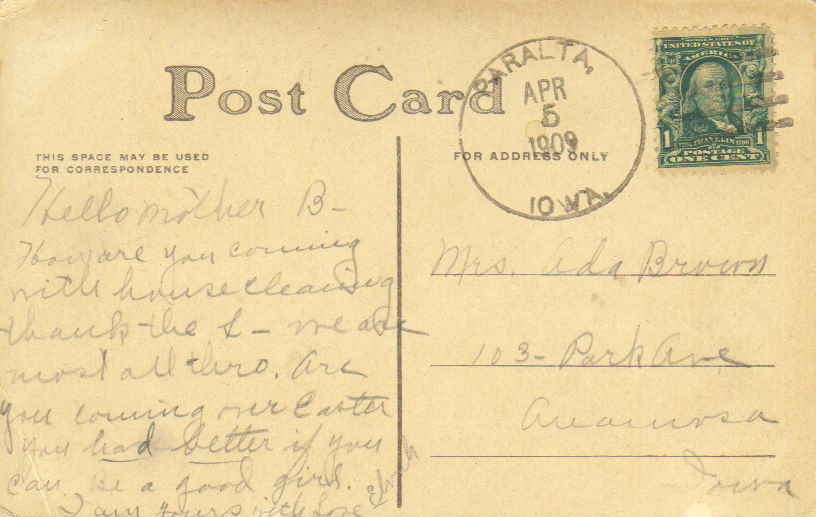 Post Card
PARALTA,
APR
5
1909
IOWA.
UNITED STATES OF
AMERICA
1 FRANKLIN 1
POSTAGE
ONE CENT
THIS SPACE MAY BE USED
FOR CORRESPONDENCE
FOR ADDRESS ONLY
Hello Mother B-
How are you coming
with housecleaning
thank the L- we are
most all thro. Are
you coming over Easter
you had better if you
can be a good girl.
I am yours with Love
Mrs. Ada Brown
103- Park Ave,
Anamosa
Iowa